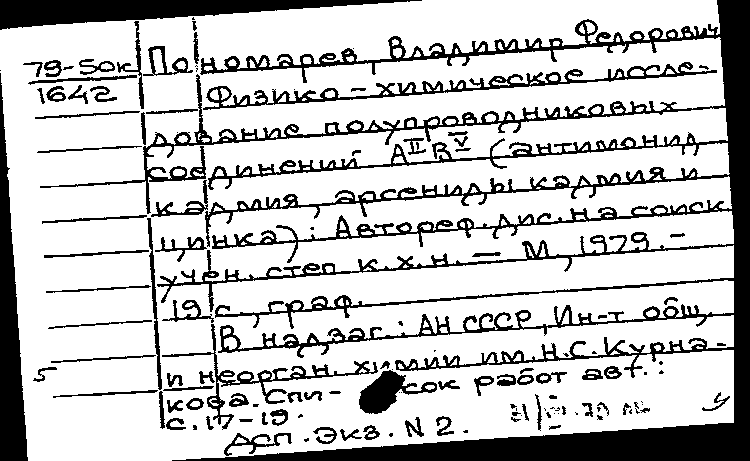 79-50к
1642
Пономарев, Владимир Федорович
Физико-химическое иссле-
дование полупроводниковых
соединений AᴵᴵBⱽ (антимонид
кадмия, арсениды кадмия и
цинка): Автореф.дис.на соиск
учен. степ к.х.н. — М, 1979.-
19 с., граф.
В надзаг.: АН СССР, Ин-т общ.
и неорган. химии им.Н.С.Курна-
кова. Спи- сок работ авт.:
с.17-19.
ДСП. Экз. N 2.
5